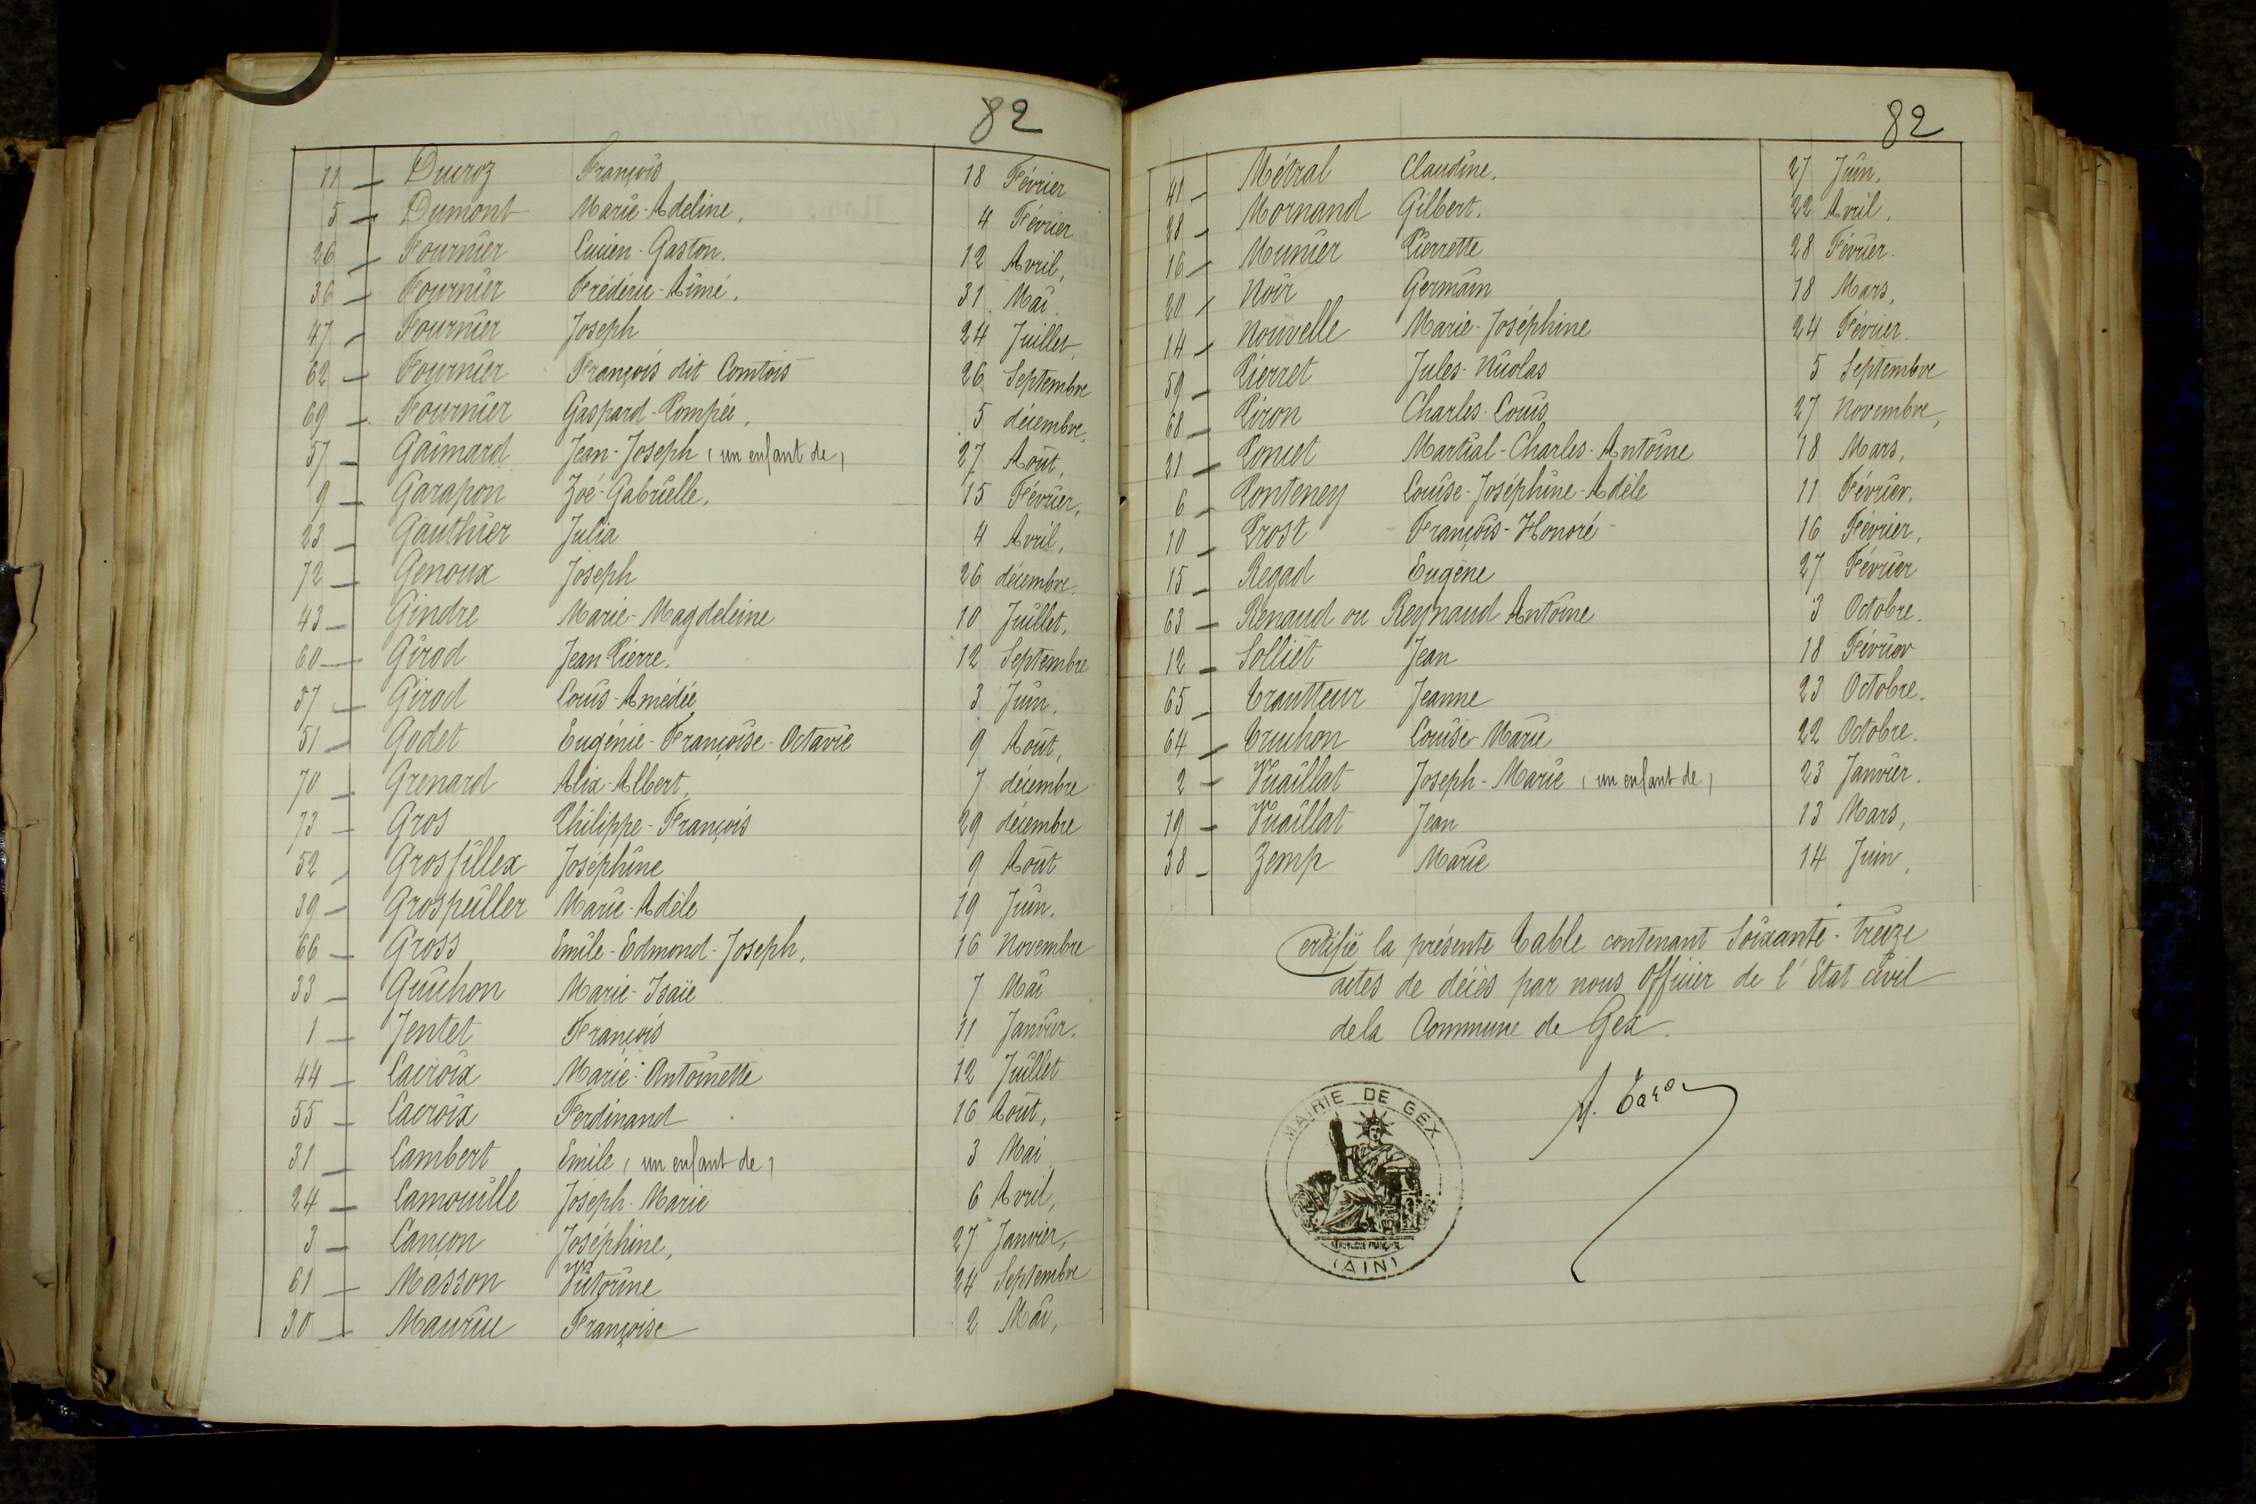 82
11 Ducroz François 18 Février
5 Dumont Marie-Adeline. 4 Février
26 Fournier Lucien-Gaston. 12 Avril,
36 Fournier Frédéric-Aimé. 31 Mai.
47 Fournier Joseph 24 Juillet.
62 Fournier François dit Comtois 26 Septembre
69 Fournier Gaspard-Pompée. 5 décembre.
57 Gaimard Jean-Joseph (un enfant de) 27 Août,
9 Garapon Zoé-Gabrielle. 15 Février,
23 Gauthier Julia 4 Avril,
72 Genoux Joseph 26 décembre.
43 Gindre Marie-Magdeleine 10 Juillet.
60 Girod Jean Pierre. 12 Septembre
37 Girod Louis-Amédée 3 Juin.
51 Godet Eugénie-Françoise-Octavie 9 Août,
70 Grenard Alix-Albert, 7 décembre
73 Gros Philippe-François 29 décembre
52 Grosfillex Joséphine 9 Août
39 Grospeiller Marie-Adèle 19 Juin.
66 Gross Emile-Edmond-Joseph, 16 Novembre
33 Guichon Marie-Isaïe 7 Mai
1 Jentet François 11 Janvier.
44 Lacroix Marie-Antoinette 12 Juillet
55 Lacroix Ferdinand 16 Août,
31 Lambert Emile (un enfant de) 3 Mai
24 Lamouille Joseph-Marie 6 Avril,
3 Lançon Joséphine, 27 Janvier,
61 Masson Victorine 24 Septembre
30 Maurice Françoise 2 Mai,
82
41 Métral Claudine. 27 Juin.
28 Mornand Gilbert. 22 Avril.
16 Munier Pierrette 28 Février.
20 Noir Germain 18 Mars,
14 Nouvelle Marie-Joséphine 24 Février.
59 Pierret Jules-Nicolas 5 Septembre
68 Piron Charles-Louis 27 Novembre,
21 Poncet Martial-Charles-Antoine 18 Mars,
6 Ponteney Louise-Joséphine-Adèle 11 Février.
10 Prost François-Honoré 16 Février,
15 Regad Eugène 27 Février
63 Renaud ou Reynaud Antoine 3 Octobre.
12 Solliet Jean 18 Février
65 Trautteur Jeanne 23 Octobre.
64 Truchon Louise-Marie 22 Octobre.
2 Vuaillat Joseph-Marie (un enfant de) 23 Janvier.
19 Vuaillat Jean 13 Mars,
38 Zemp Marie 14 Juin,
Certifié la présente Table contenant Soixante-treize
actes de décès par nous Officier de l'Etat civil
de la Commune de Gex.
MAIRIE DE GEX
(AIN)